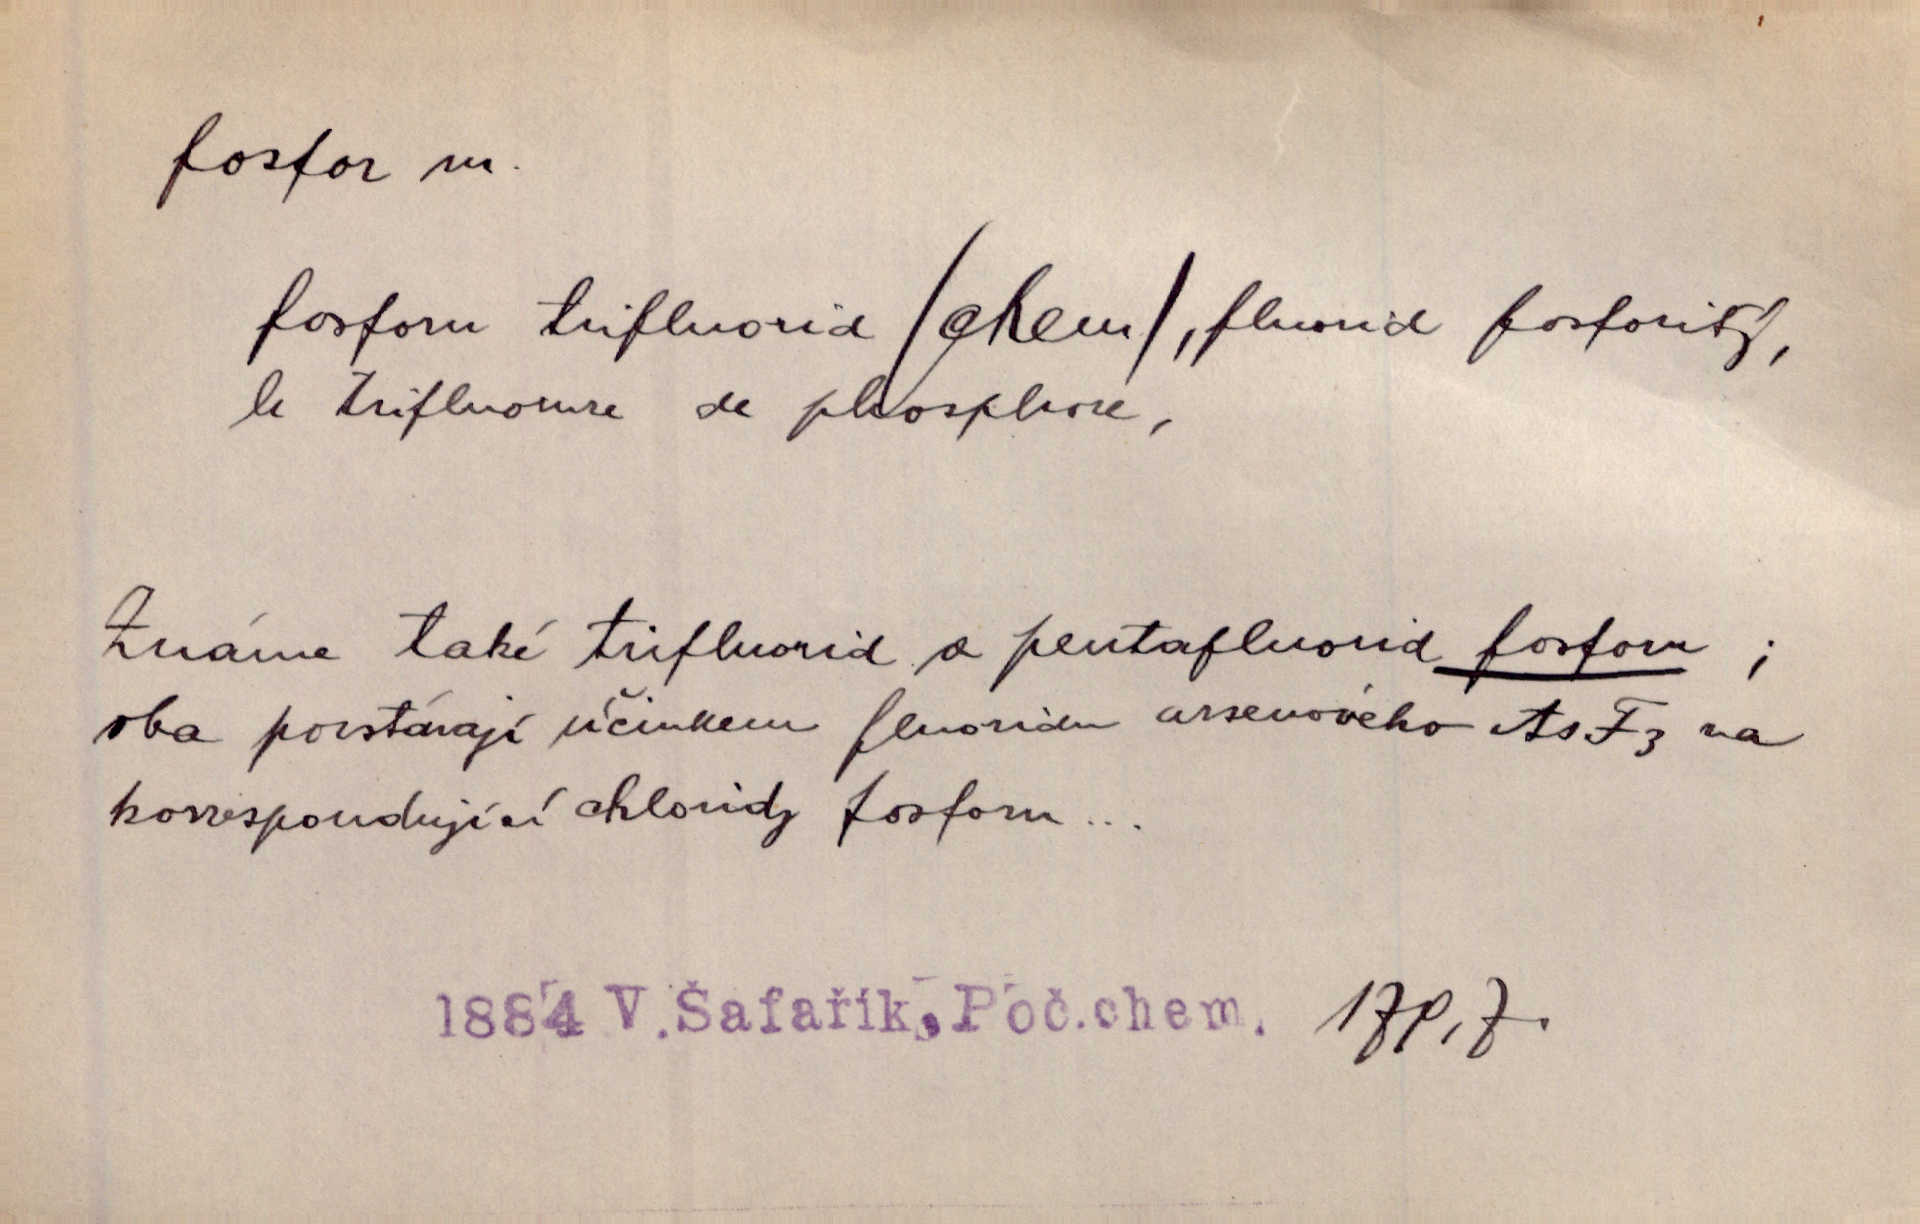 fosfor m.
fosforu trifluorid /chem/, fluorid fosforitý,
le trifluorure de phosphore,
Známe také trifluorid a pentafluorid fosforu ;
oba povstávají účinkem fluoridu arsenového AsF3 na
korrespondující chloridy fosforu ...
1884 V.Šafařík, Poč.chem.